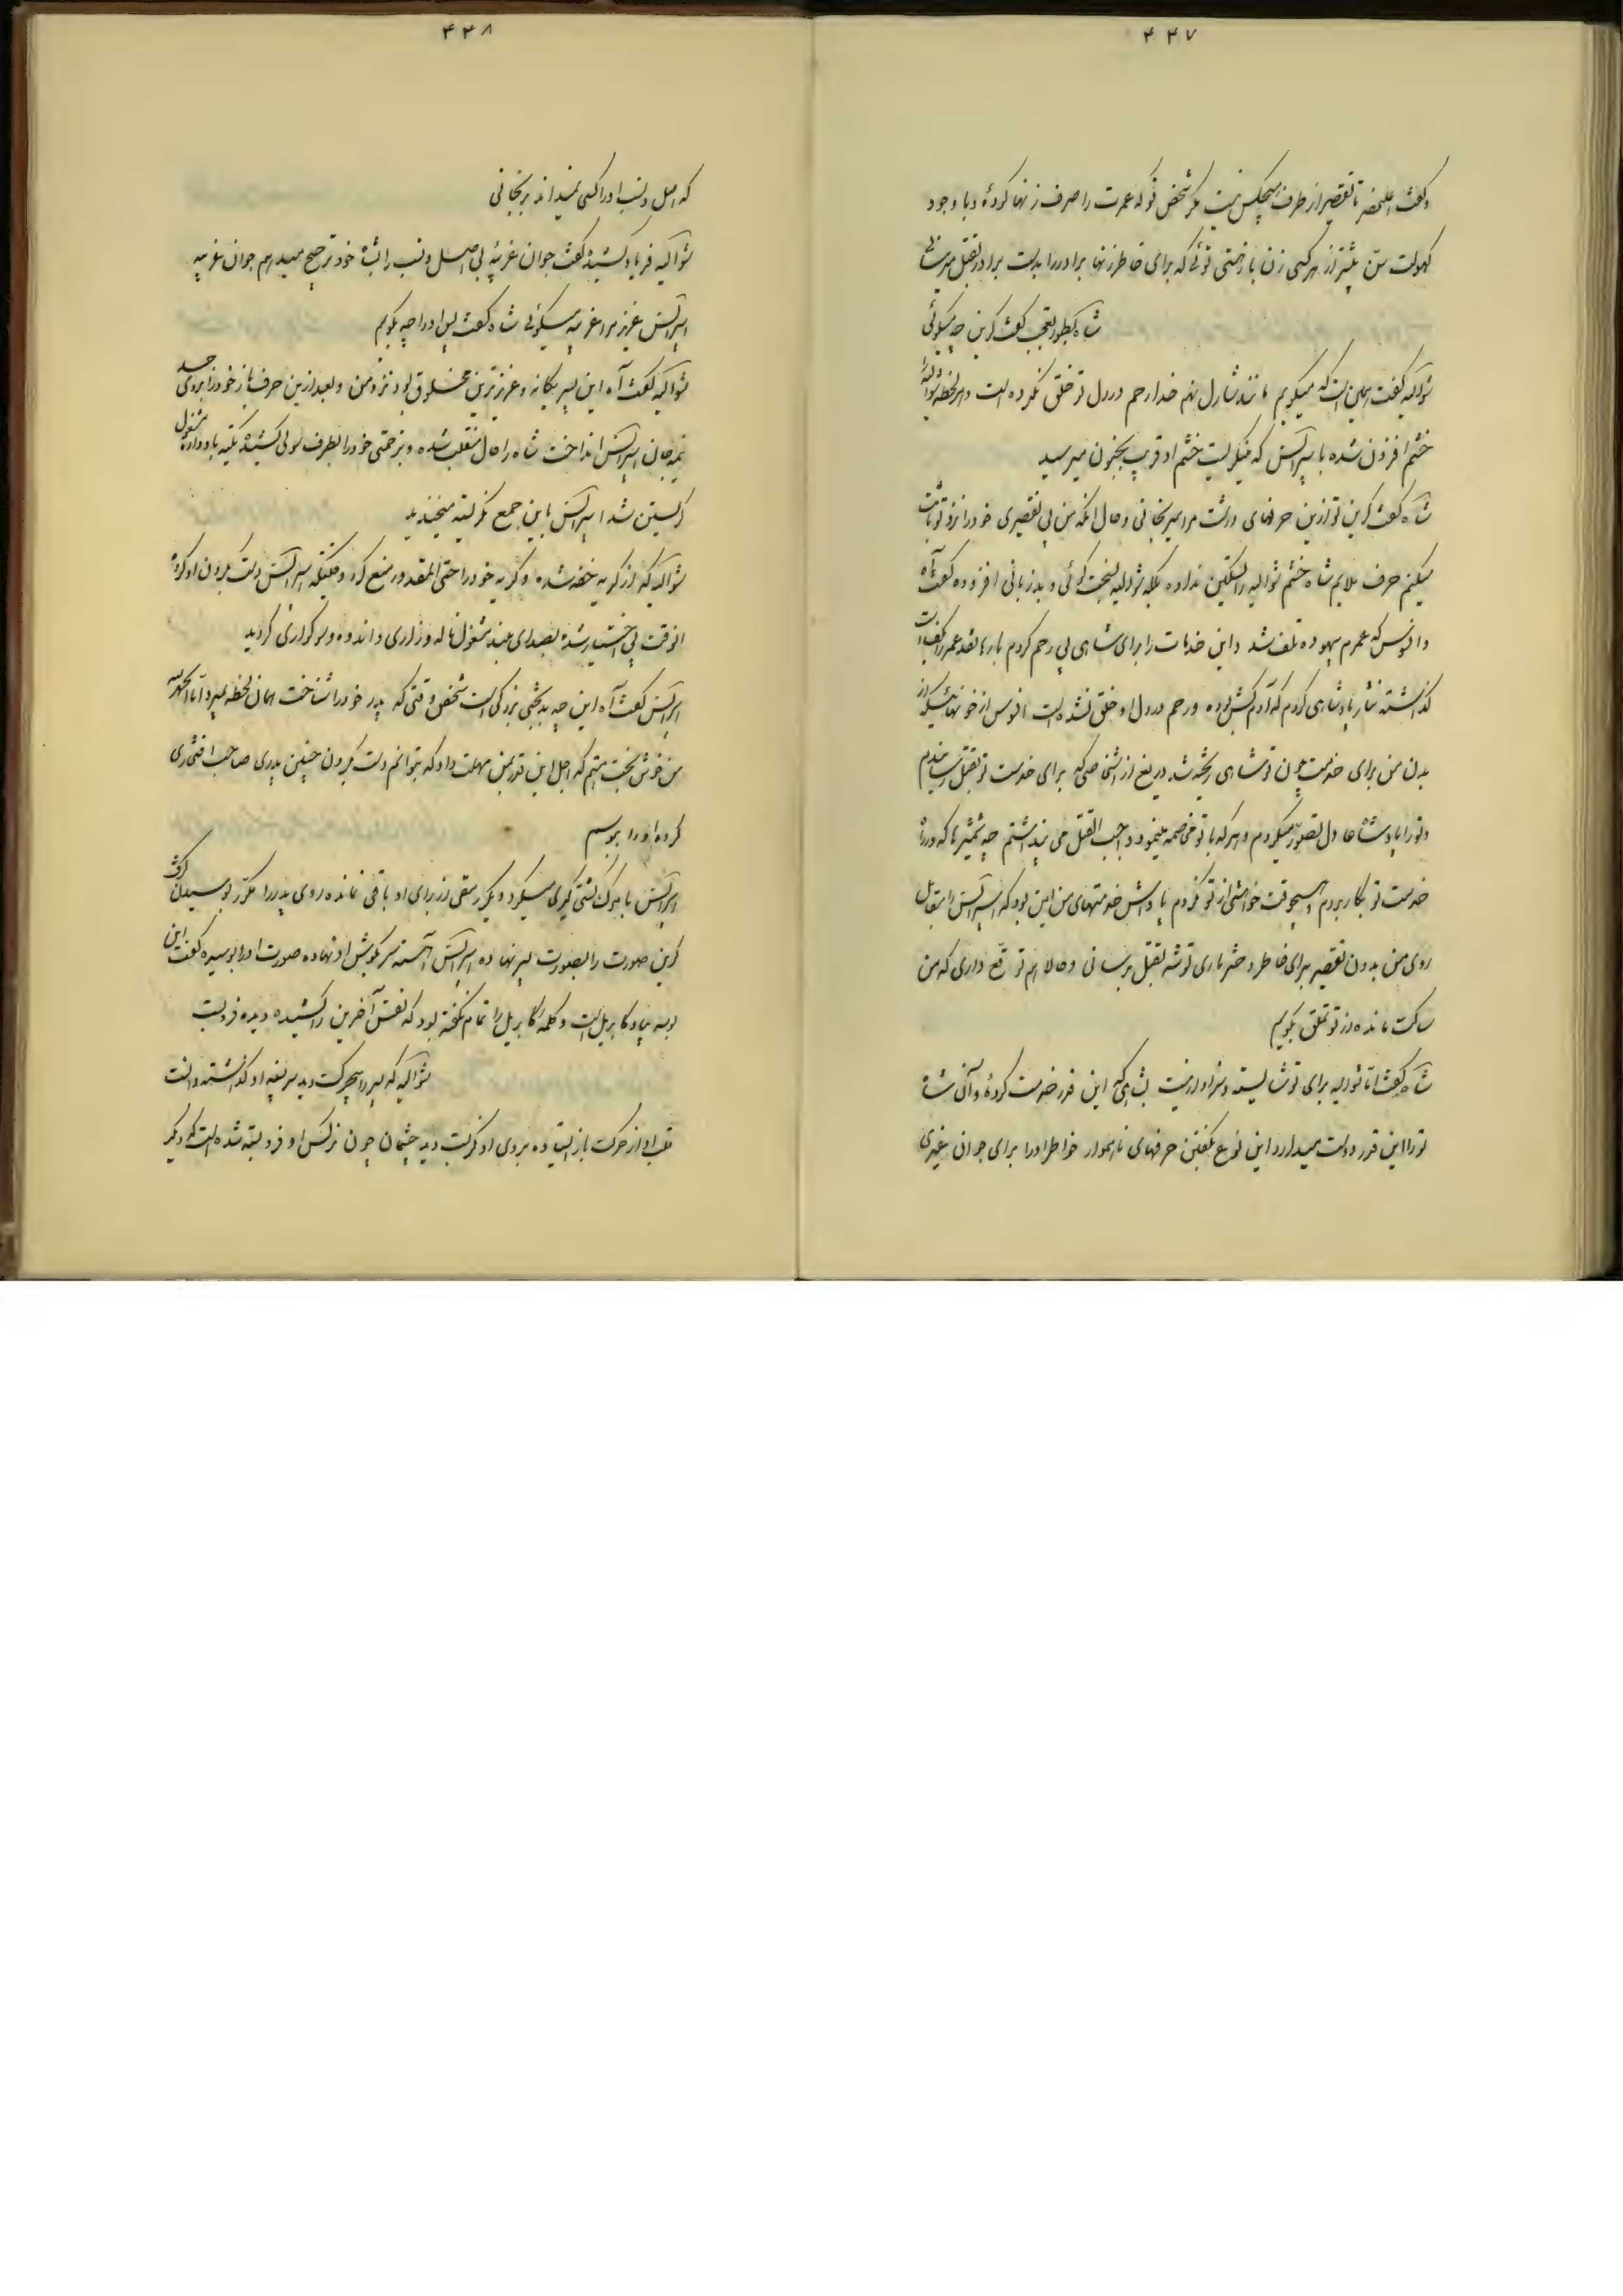 ۴۴۷
و گفت اعلیحضرتا تقصیر از طرف هیچکس نیست مگر شخص تو که عمرت را صرف زنها کردهٔ و با وجود
کهولت سن بیشتر از هر کسی زن باز هستی توئی که برای خاطر زنها برادر را بدست برادر بقتل میرسانی
شاه بطور تعجب گفت کرین چه میگوئی
شوالیه گفت همین است که میگویم مانند شارل نهم خدا رحم در دل تو خلق نکرده است و هر لحظه شوالیه را
خشم افزون شده باسپرانس که مینگریست خشم او قریب بجنون میرسید
شاه گفت کرین تو ازین حرفهای درشت مرا میرنجانی و حال انکه من بی تقصیری خود را نزد تو ثابت
میکنم حرف ملایم شاه خشم شوالیه را تسکین نداده بلکه شوالیه بسخت گوئی و بدزبانی افزوده گفت آه
وافسوس که عمرم بیهوده تلف شد و این خدمات را برای شاهی بی رحم کردم بارها نقد عمر را بکف دست
گذاشته نثار پادشاهی کردم که آدم کش بوده و رحم در دل او خلق نشده است افسوس از خونهائیکه از
بدن من برای خدمت چون تو شاهی ریخته شد دریغ از اشخاصی که برای خدمت تو بقتل رسانیدم
و تو را پادشاه عادل تصور میکردم و هر که با تو مخاصمه مینمود واجب القتل می پنداشتم چه شمشیرها که در راه
خدمت تو بکار بردم و هیچوقت خواهشی از تو نکردم پاداش خدمتهای من این بود که اسپرانس را مقابل
روی من بدون تقصیر برای خاطر دختر تاری توشه بقتل برسانی و حالا هم توقع داری که من
ساکت مانده از تو تملق بگویم
شاه گفت اما شوالیه برای تو شایسته و سزاوار نیست بشاهی که این قدر خدمت کردهٔ و آن شاه
تو را این قدر دوست میدارد این نوع بگفتن حرفهای ناهموار خواطر او را برای جوان غیری
۴۴۸
که اصل و نسب او را کسی نمیداند برنجانی
شوالیه فریاد کشیده گفت جوان غریبه بی اصل و نسب را بشاه خود ترجیح میدهم جوان غریبه
اسپرانس عزیز مرا غریبه میگوئی شاه گفت پس او را چه بگویم
شوالیه گفت آه این پسر یگانه و عزیزترین مخلوق بود نزد من و بعد از این حرف باز خود را بروی جسد
نیمه جان اسپرانس انداخت شاه را حال منقلب شده و بزحمتی خود را بطرف سولی کشیده تکیه باو داده مشغول
گریستن شد اسپرانس باین جمع نگریسته میخندید
شوالیه که از گریه خفه شده و گریه خود را حتی المقدور منع کرد وقتیکه اسپرانس دست بگردن او کرده
انوقت بی اختیار شده بصدای بلند مشغول ناله و زاری و اندوه و سوگواری گردید
اسپرانس گفت آه این چه بدبختی بزرگی است شخص وقتی که پدر خود را شناخت همان لحظه بمیرد اما الحمدلله
من خوش بخت هستم که اجل این قدر بمن مهلت داد که بتوانم دست بگردن چنین پدری صاحب افتخاری
کرده او را ببوسم
اسپرانس با مرگ کشتی گیری میکرد و دیگر رمقی از برای او باقی نمانده روی پدر را مکرر بوسیدن گرفت
کرین صورت را بصورت پسر نهاده اسپرانس آهسته سر بگوش او نهاده صورت او را بوسیده گفت این
بوسه بیاد کابریل است و کلمه کابریل را تمام نگفته بود که نفس آخرین را کشیده دیده فرو بست
شوالیه که پسر را بیحرکت دید سر بسینه او گذاشته دانست
قلب او از حرکت باز ایستاده بروی او نگریست دید چشمان چون نرگس او فرو بسته شده است که دیگر